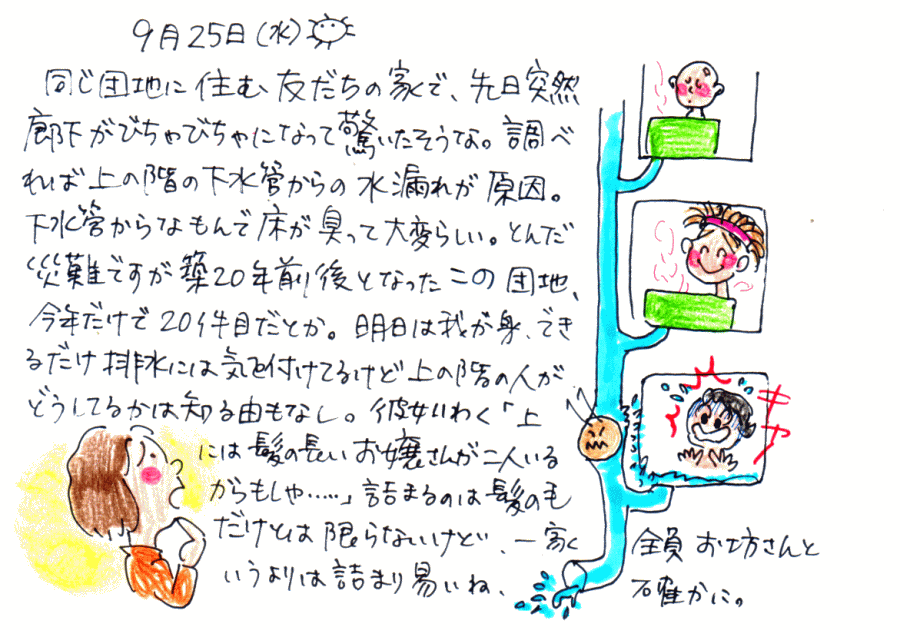 9月25日(水)
同じ団地に住む友だちの家で、先日突然
廊下がびちゃびちゃになって驚いたそうな。調べ
れば上の階の下水管からの水漏れが原因。
下水管からなもんで床が臭って大変らしい。とんだ
災難ですが築20年前後となったこの団地、
今年だけで20件目だとか。明日は我が身、でき
るだけ排水には気を付けてるけど上の階の人が
どうしてるかは知る由もなし。彼女いわく「上
には髪の長いお嬢さんが二人いる
からもしや……」詰まるのは髪の毛
だけとは限らないけど、一家
いうよりは詰まり易いね、
全員お坊さんと
確かに。
キャー